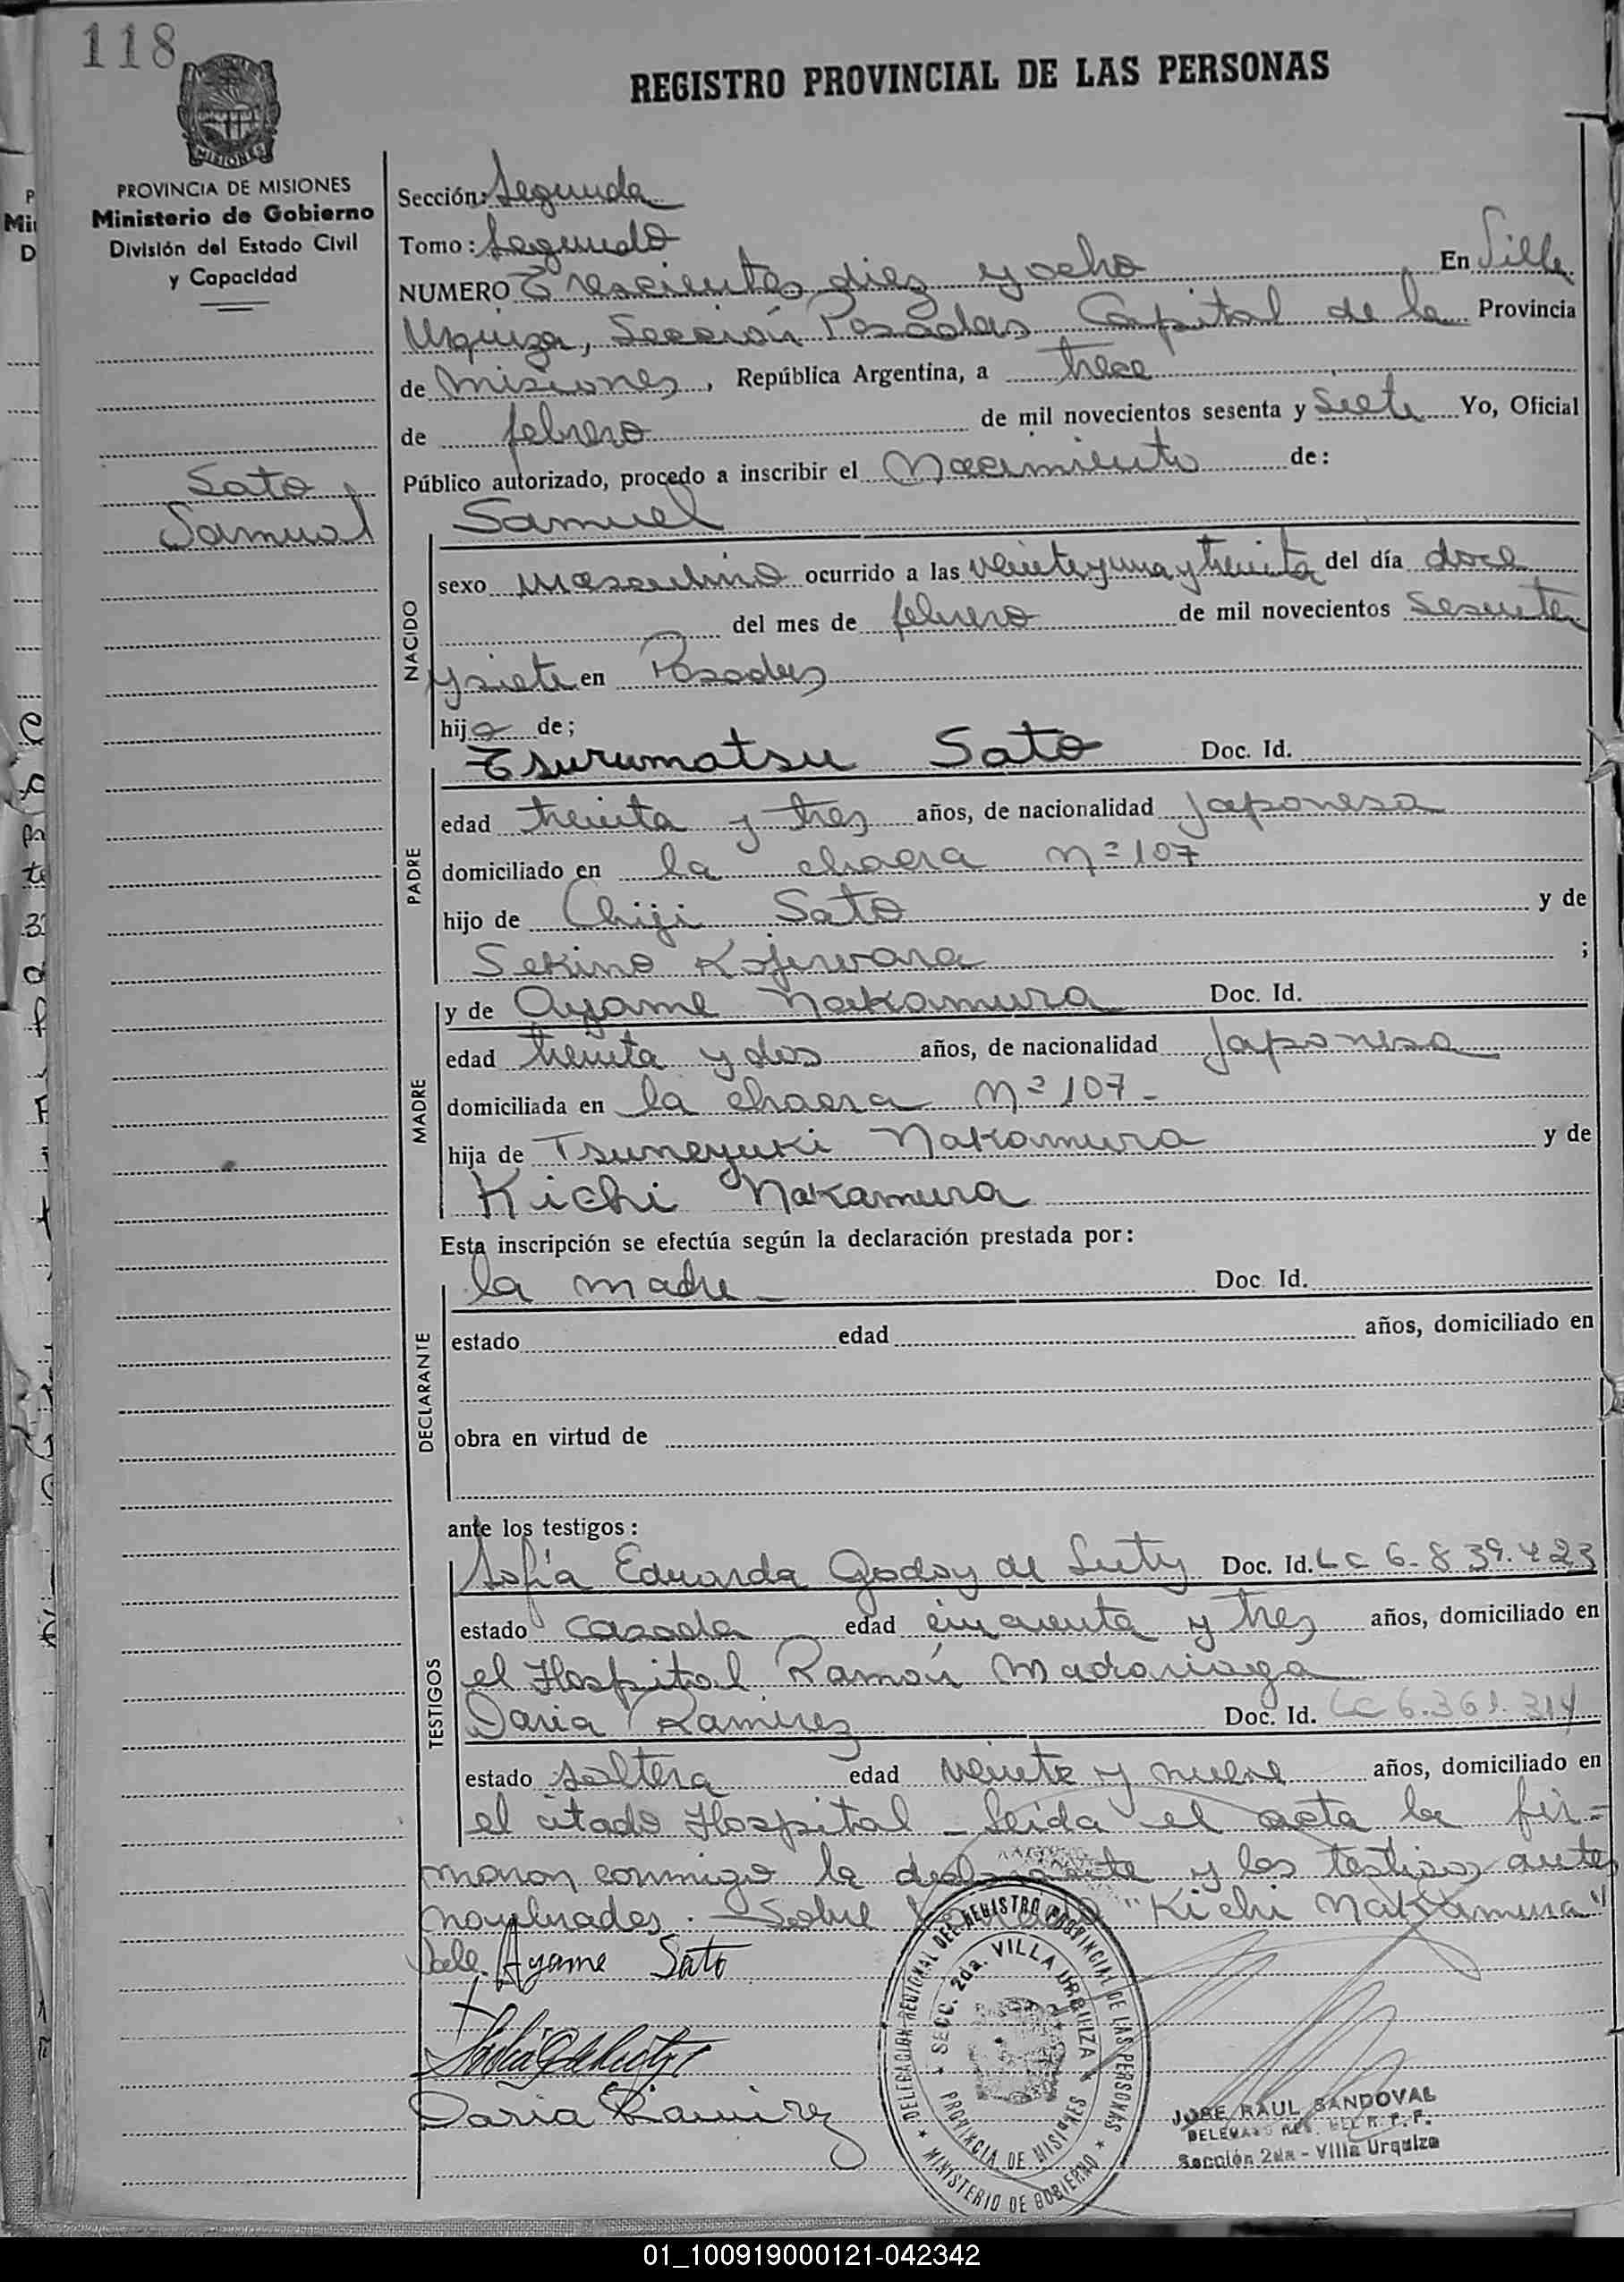 118
REGISTRO PROVINCIAL DE LAS PERSONAS
MISIONES
PROVINCIA DE MISIONES
Ministerio de Gobierno
División del Estado Civil
y Capacidad
Sato
Samuel
Sección: Segunda
Tomo: Segundo
NUMERO Trescientos diez y ocho En Villa
Urquiza, Sección Posadas Capital de la Provincia
de Misiones, República Argentina, a trece
de febrero de mil novecientos sesenta y siete Yo, Oficial
Público autorizado, procedo a inscribir el Nacimiento de:
Samuel
NACIDO
sexo masculino ocurrido a las veinte y una y treinta del día doce
del mes de febrero de mil novecientos sesenta
y siete en Posadas
hijo de;
Tsurumatsu Sato Doc. Id.
PADRE
edad treinta y tres años, de nacionalidad Japonesa
domiciliado en la chacra Nº 107
hijo de Chiji Sato y de
Sekino ;
y de Ayame Nakamura Doc. Id.
MADRE
edad treinta y dos años, de nacionalidad Japonesa
domiciliada en la chacra Nº 107-
hija de Tsuneyuki Nakamura y de
Kichi Nakamura
Esta inscripción se efectúa según la declaración prestada por:
la madre- Doc. Id.
DECLARANTE
estado edad años, domiciliado en
obra en virtud de
ante los testigos:
Sofía Eduarda Godoy de Doc. Id. LC 6-839.423
TESTIGOS
estado casada edad cincuenta y tres años, domiciliado en
el Hospital Ramón Madariaga
Daria Ramirez Doc. Id. LC 6.361.314
estado soltera edad veinte y nueve años, domiciliado en
el citado Hospital - Leída el acta la fir=
maron conmigo la declarante y los testigos antes
nombrados. Sobre "Kichi Nakamura"
Vale. Ayame Sato
Daria Ramirez
DELEGACION REGIONAL DEL REGISTRO PROVINCIAL DE LAS PERSONAS
SECC. 2da. VILLA URQUIZA
PROVINCIA DE MISIONES
MINISTERIO DE GOBIERNO
JOSE RAUL SANDOVAL
Sección 2da - Villa Urquiza
01_100919000121-042342